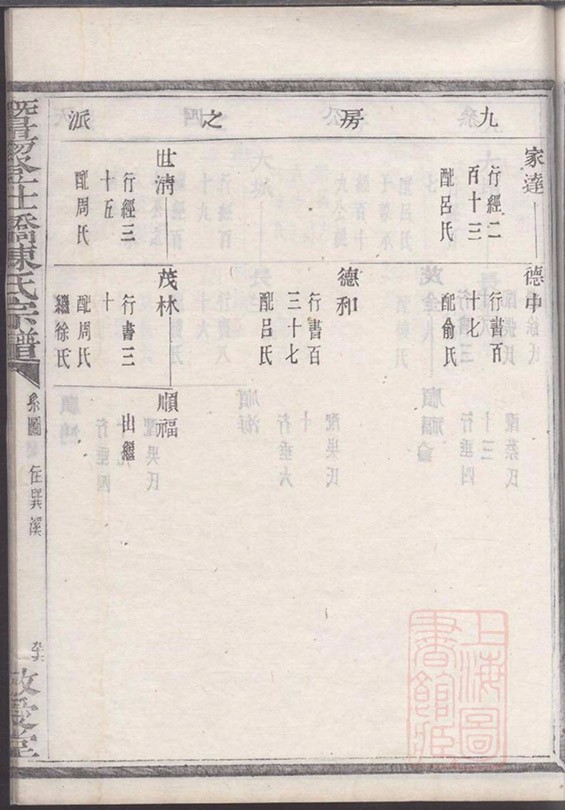 九房之派
家達
行經二
百十三
配呂氏
世清
行經三
十五
配周氏
德中
行書百
十七
配俞氏
德和
行書百
三十七
配呂氏
茂林
行書二
十
配周氏
繼徐氏
順福
出繼
陳氏宗譜
系圖
住巽溪
敬愛堂
上海圖
書館藏